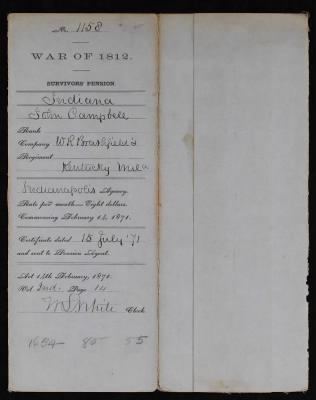 No. 1158
WAR OF 1812.
SURVIVORS' PENSION
Indiana
John Campbell
Rank
Company W. R. Brashfield's
Regiment
Kentucky Mila
Indianapolis Agency.
Rate per month—Eight dollars.
Commencing February 14, 1871.
Certificate dated 15 July '71
and sent to Pension Agent.
Act 14th February, 1871.
Vol. Ind. Page 14
Clerk.
55